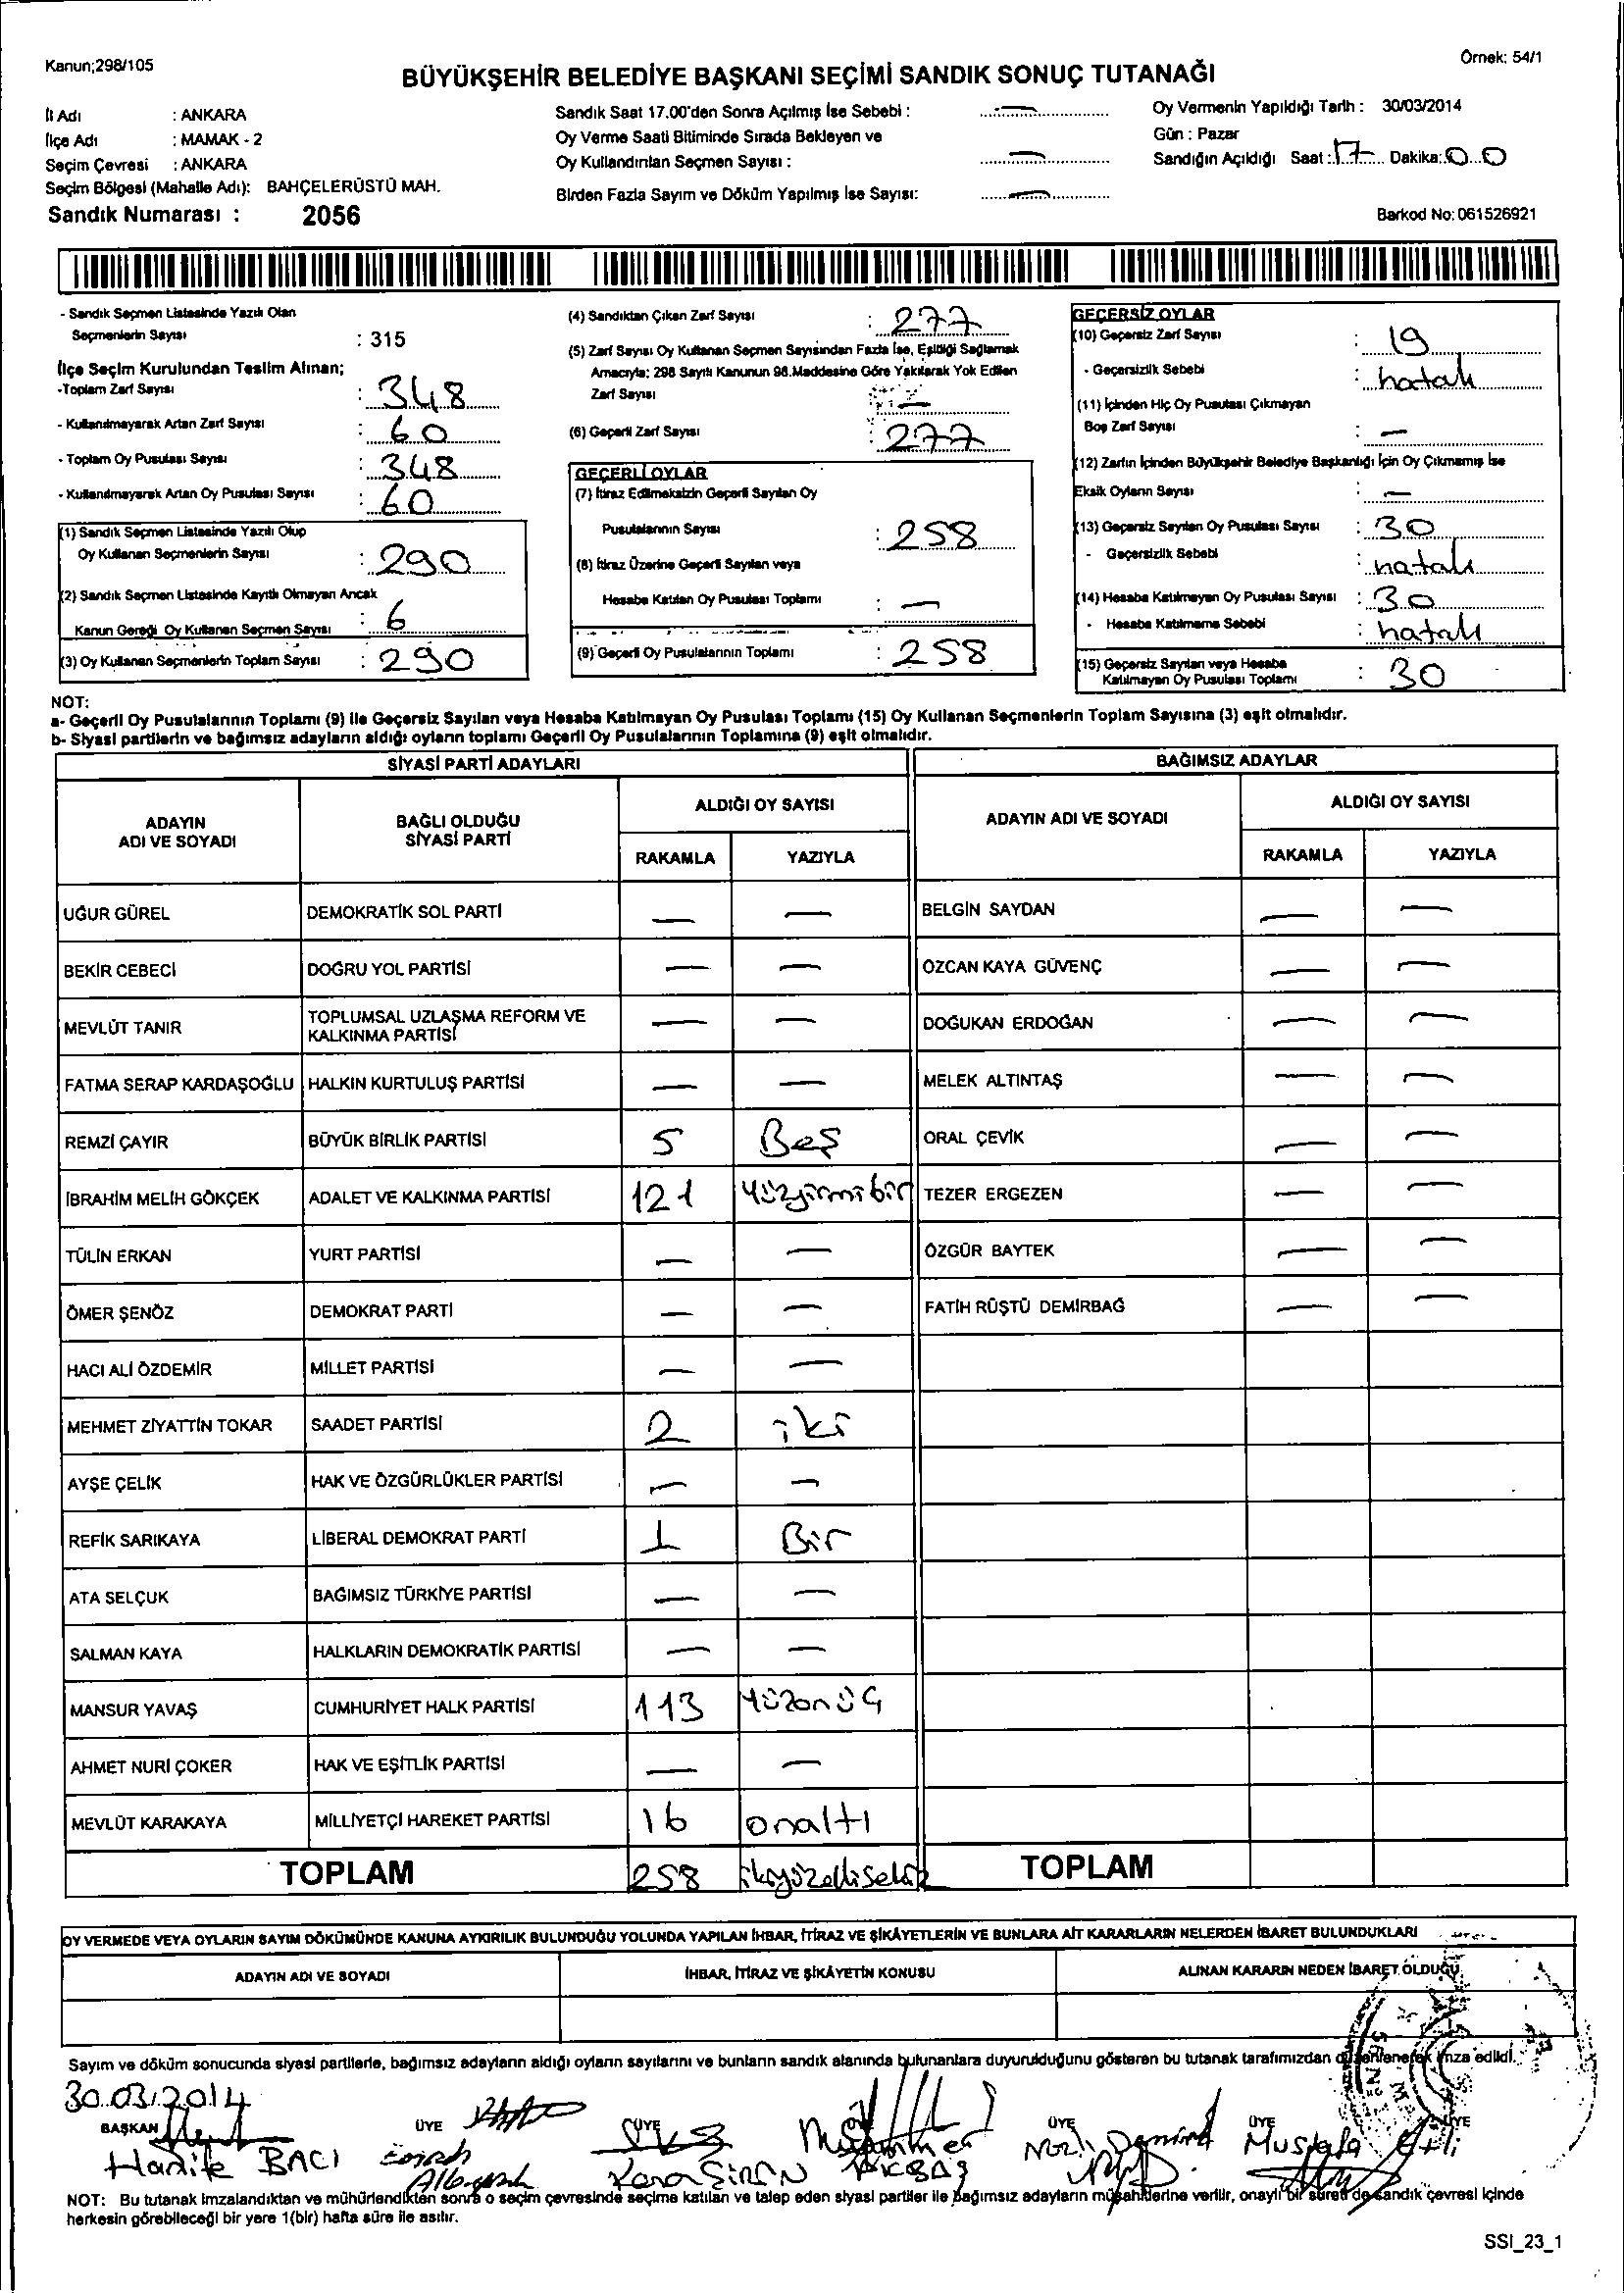 Kanun;298/105
Örnek: 54/1
BÜYÜKŞEHİR BELEDİYE BAŞKANI SEÇİMİ SANDIK SONUÇ TUTANAĞI
İl Adı : ANKARA
İlçe Adı : MAMAK - 2
Seçim Çevresi : ANKARA
Seçim Bölgesi (Mahalle Adı): BAHÇELERÜSTÜ MAH.
Sandık Numarası : 2056
Sandık Saat 17.00'den Sonra Açılmış İse Sebebi : —
Oy Verme Saati Bitiminde Sırada Bekleyen ve
Oy Kullandırılan Seçmen Sayısı : —
Birden Fazla Sayım ve Döküm Yapılmış İse Sayısı: —
Oy Vermenin Yapıldığı Tarih : 30/03/2014
Gün : Pazar
Sandığın Açıldığı Saat : 17 Dakika: 00
Barkod No: 061526921
- Sandık Seçmen Listesinde Yazılı Olan
Seçmenlerin Sayısı : 315
İlçe Seçim Kurulundan Teslim Alınan;
-Toplam Zarf Sayısı : 348
- Kullanılmayarak Artan Zarf Sayısı : 60
- Toplam Oy Pusulası Sayısı : 348
- Kullanılmayarak Artan Oy Pusulası Sayısı : 60
(1) Sandık Seçmen Listesinde Yazılı Olup
Oy Kullanan Seçmenlerin Sayısı : 290
(2) Sandık Seçmen Listesinde Kayıtlı Olmayan Ancak
Kanun Gereği Oy Kullanan Seçmen Sayısı : 6
(3) Oy Kullanan Seçmenlerin Toplam Sayısı : 290
(4) Sandıktan Çıkan Zarf Sayısı : 277
(5) Zarf Sayısı Oy Kullanan Seçmen Sayısından Fazla İse, Eşitliği Sağlamak
Amacıyla; 298 Sayılı Kanunun 98.Maddesine Göre Yakılarak Yok Edilen
Zarf Sayısı : —
(6) Geçerli Zarf Sayısı : 277
GEÇERLİ OYLAR
(7) İtiraz Edilmeksizin Geçerli Sayılan Oy
Pusulalarının Sayısı : 258
(8) İtiraz Üzerine Geçerli Sayılan veya
Hesaba Katılan Oy Pusulası Toplamı : —
(9) Geçerli Oy Pusulalarının Toplamı : 258
GEÇERSİZ OYLAR
(10) Geçersiz Zarf Sayısı : 19
- Geçersizlik Sebebi : hatalı
(11) İçinden Hiç Oy Pusulası Çıkmayan
Boş Zarf Sayısı : —
(12) Zarfın İçinden Büyükşehir Belediye Başkanlığı İçin Oy Çıkmamış İse
Eksik Oyların Sayısı : —
(13) Geçersiz Sayılan Oy Pusulası Sayısı : 30
- Geçersizlik Sebebi : hatalı
(14) Hesaba Katılmayan Oy Pusulası Sayısı : 30
- Hesaba Katılmama Sebebi : hatalı
(15) Geçersiz Sayılan veya Hesaba
Katılmayan Oy Pusulası Toplamı : 30
NOT:
a- Geçerli Oy Pusulalarının Toplamı (9) ile Geçersiz Sayılan veya Hesaba Katılmayan Oy Pusulası Toplamı (15) Oy Kullanan Seçmenlerin Toplam Sayısına (3) eşit olmalıdır.
b- Siyasi partilerin ve bağımsız adayların aldığı oyların toplamı Geçerli Oy Pusulalarının Toplamına (9) eşit olmalıdır.
SİYASİ PARTİ ADAYLARI
ADAYIN
ADI VE SOYADI
BAĞLI OLDUĞU
SİYASİ PARTİ
ALDIĞI OY SAYISI
RAKAMLA YAZIYLA
UĞUR GÜREL DEMOKRATİK SOL PARTİ — —
BEKİR CEBECİ DOĞRU YOL PARTİSİ — —
MEVLÜT TANIR TOPLUMSAL UZLAŞMA REFORM VE
KALKINMA PARTİSİ — —
FATMA SERAP KARDAŞOĞLU HALKIN KURTULUŞ PARTİSİ — —
REMZİ ÇAYIR BÜYÜK BİRLİK PARTİSİ 5 Beş
İBRAHİM MELİH GÖKÇEK ADALET VE KALKINMA PARTİSİ 121 Yüzyirmibir
TÜLİN ERKAN YURT PARTİSİ — —
ÖMER ŞENÖZ DEMOKRAT PARTİ — —
HACI ALİ ÖZDEMİR MİLLET PARTİSİ — —
MEHMET ZİYATTİN TOKAR SAADET PARTİSİ 2 iki
AYŞE ÇELİK HAK VE ÖZGÜRLÜKLER PARTİSİ — —
REFİK SARIKAYA LİBERAL DEMOKRAT PARTİ 1 Bir
ATA SELÇUK BAĞIMSIZ TÜRKİYE PARTİSİ — —
SALMAN KAYA HALKLARIN DEMOKRATİK PARTİSİ — —
MANSUR YAVAŞ CUMHURİYET HALK PARTİSİ 113 Yüzonüç
AHMET NURİ ÇOKER HAK VE EŞİTLİK PARTİSİ — —
MEVLÜT KARAKAYA MİLLİYETÇİ HAREKET PARTİSİ 16 onaltı
TOPLAM 258 ikiyüzellisekiz
BAĞIMSIZ ADAYLAR
ADAYIN ADI VE SOYADI
ALDIĞI OY SAYISI
RAKAMLA YAZIYLA
BELGİN SAYDAN — —
ÖZCAN KAYA GÜVENÇ — —
DOĞUKAN ERDOĞAN — —
MELEK ALTINTAŞ — —
ORAL ÇEVİK — —
TEZER ERGEZEN — —
ÖZGÜR BAYTEK — —
FATİH RÜŞTÜ DEMİRBAĞ — —
TOPLAM
OY VERMEDE VEYA OYLARIN SAYIM DÖKÜMÜNDE KANUNA AYKIRILIK BULUNDUĞU YOLUNDA YAPILAN İHBAR, İTİRAZ VE ŞİKÂYETLERİN VE BUNLARA AİT KARARLARIN NELERDEN İBARET BULUNDUKLARI
ADAYIN ADI VE SOYADI İHBAR, İTİRAZ VE ŞİKÂYETİN KONUSU ALINAN KARARIN NEDEN İBARET OLDUĞU
Sayım ve döküm sonucunda siyasi partilerle, bağımsız adayların aldığı oyların sayılarını ve bunların sandık alanında bulunanlara duyurulduğunu gösteren bu tutanak tarafımızdan düzenlenerek imza edildi.
30.03.2014
BAŞKAN ÜYE ÜYE ÜYE ÜYE ÜYE
BACI Mustafa
NOT: Bu tutanak imzalandıktan ve mühürlendikten sonra o seçim çevresinde seçime katılan ve talep eden siyasi partiler ile bağımsız adayların müşahitlerine verilir, onaylı bir sureti de sandık çevresi içinde
herkesin görebileceği bir yere 1(bir) hafta süre ile asılır.
SSI_23_1